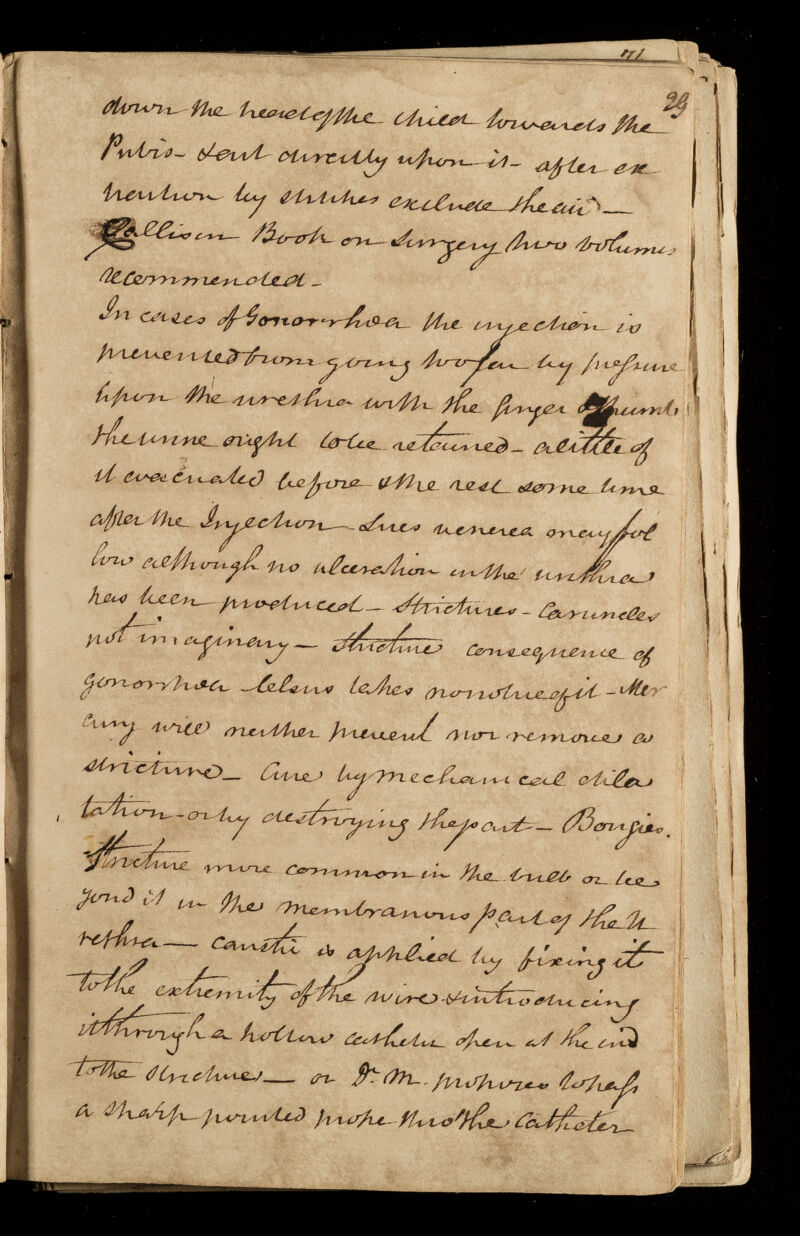 71
29
down the head of the child towards the
Pubis - & cut directly upon it - after ex
traction by stitches exclude the air —
Callisen Book on Surgery two volumes
recommended -
In cases of Gonorrhœa the injection is
prevented from going too far by pressure
upon the urethra with the finger & thumb
the urine ought to be retained - a little of
it evacuated before & the rest some time
after the Injection - Lues venerea may fol
low although no ulceration in the urethra
has been produced - Strictures - Caruncles
not imaginary - Stricture consequence of
gonorrhœa Celsus takes no notice of it - Mer
cury will neither prevent nor remove a
stricture - Cure by mechanical dila
tation - or by destroying the part - Bougies.
Stricture more common in the bulb or be
yond it in the membranous part of the U
rethra — caustic is applied by fixing it
to the extremity of the wire & introducing
it through a hollow catheter open at the end
to the stricture — or Dr. M. proposes to pass
a sharp pointed probe thro' the Catheter